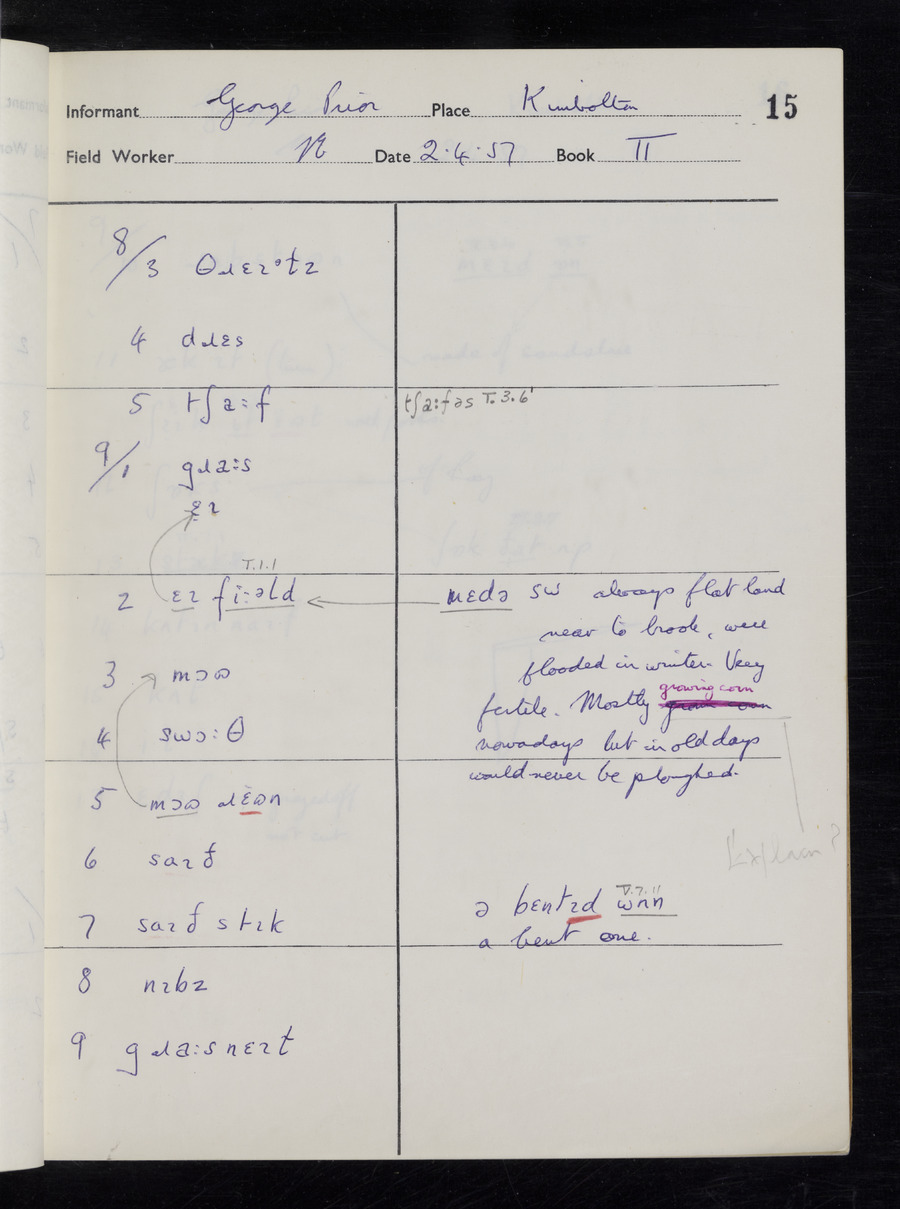 Informant George Prior Place Kimbolton 15
Field Worker Date 2.4.57 Book II
8/3 θɹɛɪᵊtz
4 dɹɛs
5 tʃa:f tʃa:fəs T.3.6'
9/1 gɹa:s
ɛɪ
T.1.1
2 ɛɪ fi:əld mɛdə sw always flat land
near to brook, were
flooded in winter. Very
3 mɔʊ growing corn
fertile. Mostly
4 swɔ:θ nowadays but in old days
would never be ploughed.
5 mɔʊ ɹɛʊn
Explain?
6 saɪð
T.7.11
ə bɛntɪd ωnn
7 saɪð stɪk
a bent one.
8 nɪbz
9 gɹa:snɛɪt